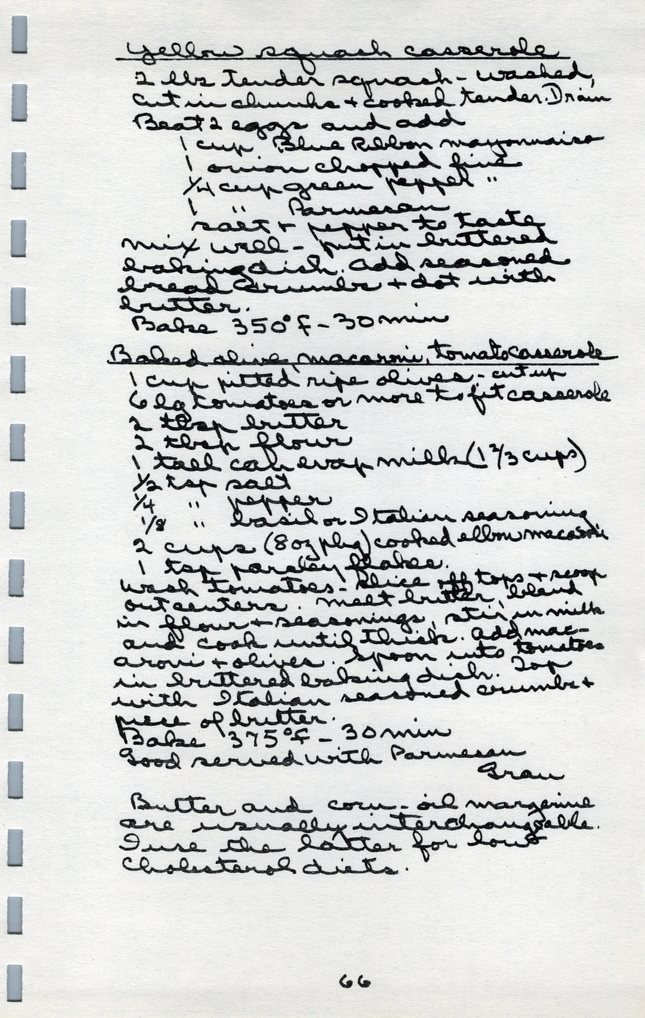 Yellow squash casserole
2 lbs tender squash - washed,
cut in chunks + cooked tender. Drain
Beat 2 eggs and add
1 cup Blue Ribbon mayonnaise
1 onion chopped fine
1/4 cup green pepper "
1 " Parmesan
salt + pepper to taste
mix well - put in buttered
baking dish. add seasoned
bread crumbs + dot with
butter.
Bake 350°F - 30 min
Baked olive, macaroni, tomato casserole
1 cup pitted ripe olives - cut up
6 lg tomatoes or more to fit casserole
2 tbsp butter
2 tbsp flour
1 tall can evap milk (1 2/3 cups)
1/2 tsp salt
1/4 " pepper
1/8 " basil or Italian seasoning
2 cups (8 oz pkg) cooked elbow macaroni
1 tsp parsley flakes.
Wash tomatoes - slice off tops + scoop
out centers. Melt butter, blend
in flour + seasonings, stir in milk
and cook until thick. add mac-
aroni + olives. Spoon into tomatoes
in buttered baking dish. Top
with Italian seasoned crumbs +
piece of butter.
Bake 375°F - 30 min
Good served with Parmesan
Gran
Butter and corn-oil margerine
are usually interchangeable.
I use the latter for low
Cholesterol diets.
66